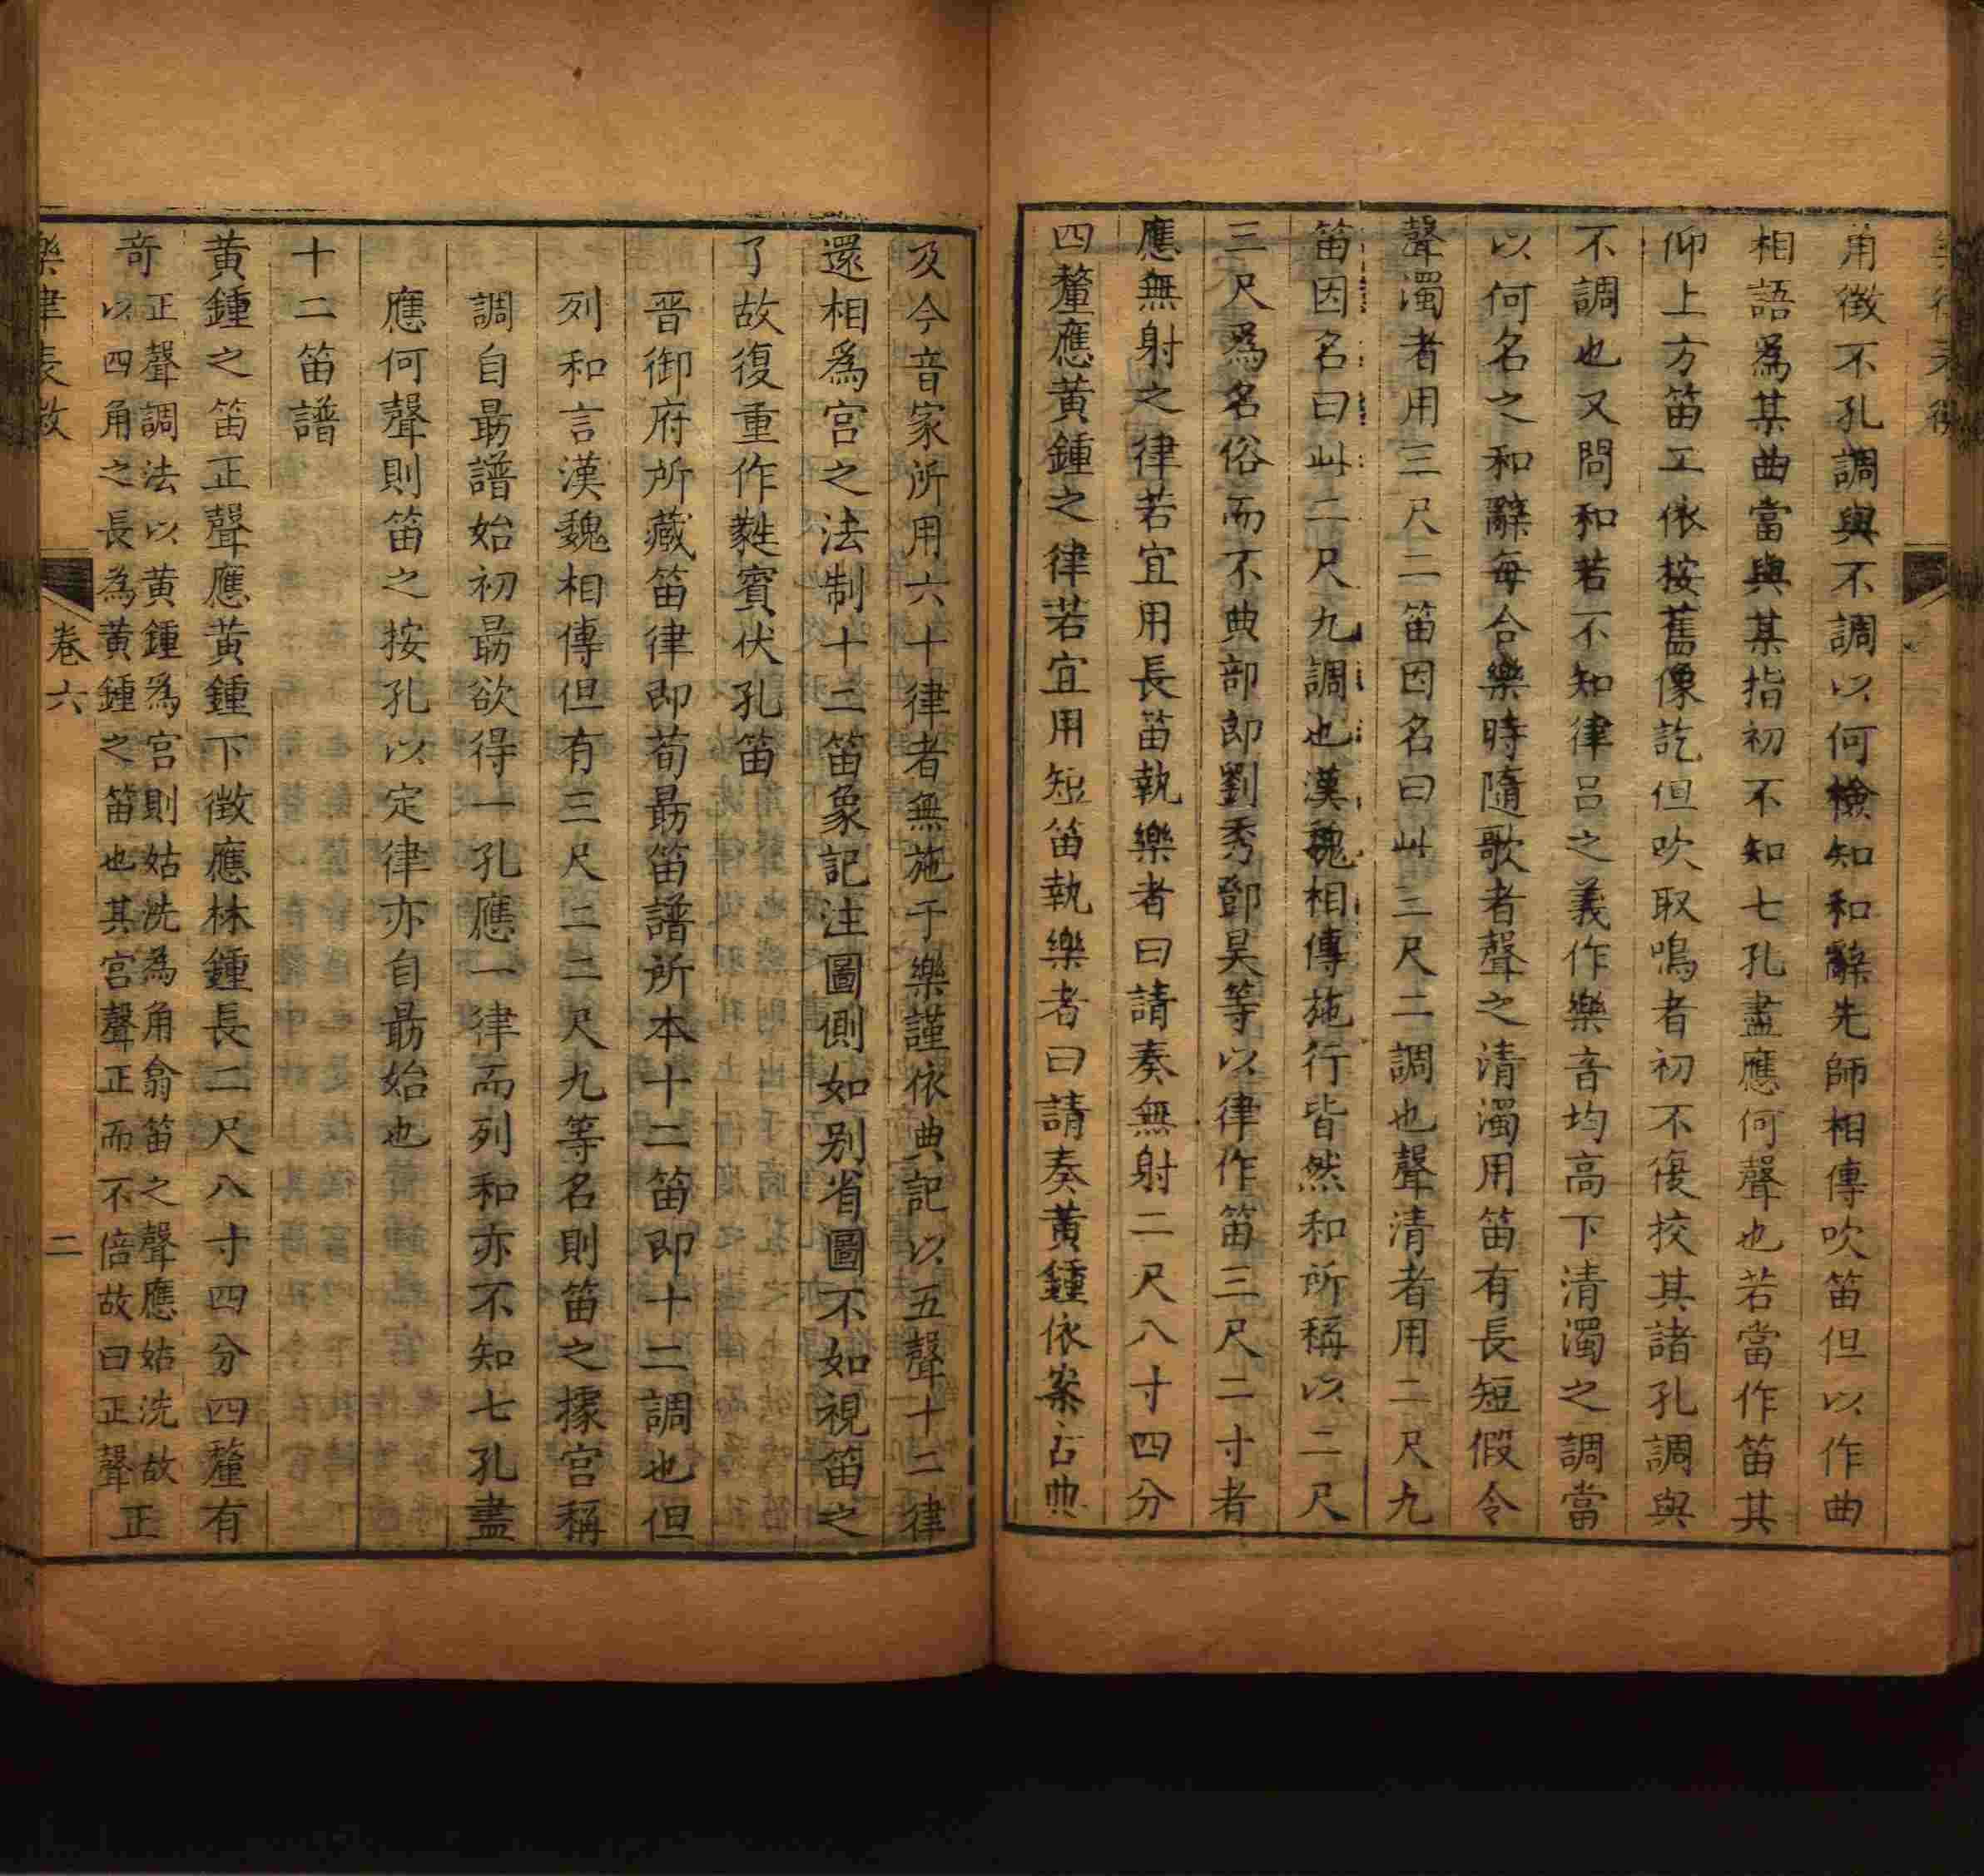 角徵不孔調與不調以何檢知和辭先師相傳吹笛但以作曲
相語爲某曲當與某指初不知七孔盡應何聲也若當作笛其
仰上方笛工依按舊像訖但吹取鳴者初不復挍其諸孔調與
不調也又問和若不知律呂之義作樂音均高下清濁之調當
以何名之和辭每合樂時隨歌者聲之清濁用笛有長短假令
聲濁者用三尺二笛因名曰此三尺二調也聲清者用二尺九
笛因名曰此二尺九調也漢魏相傳施行皆然和所稱以二尺
三尺爲名俗而不典部郎劉秀鄧昊等以律作笛三尺二寸者
應無射之律若宜用長笛執樂者曰請奏無射二尺八寸四分
四釐應黃鍾之律若宜用短笛執樂者曰請奏黃鍾依案古典
及今音家所用六十律者無施于樂謹依典記以五聲十二律
還相爲宮之法制十二笛象記注圖側如别省圖不如視笛之
了故復重作蕤賓伏孔笛
晋御府所藏笛律即荀勗笛譜所本十二笛即十二調也但
列和言漢魏相傳但有三尺二二尺九等名則笛之據宮稱
調自勗譜始初勗欲得一孔應一律而列和亦不知七孔盡
應何聲則笛之按孔以定律亦自勗始也
十二笛譜
黃鍾之笛正聲應黃鍾下徵應林鍾長二尺八寸四分四釐有
奇正聲調法以黃鍾爲宮則姑洗為角翕笛之聲應姑洗故
以四角之長為黃鍾之笛也其宮聲正而不倍故曰正聲正
卷六
二